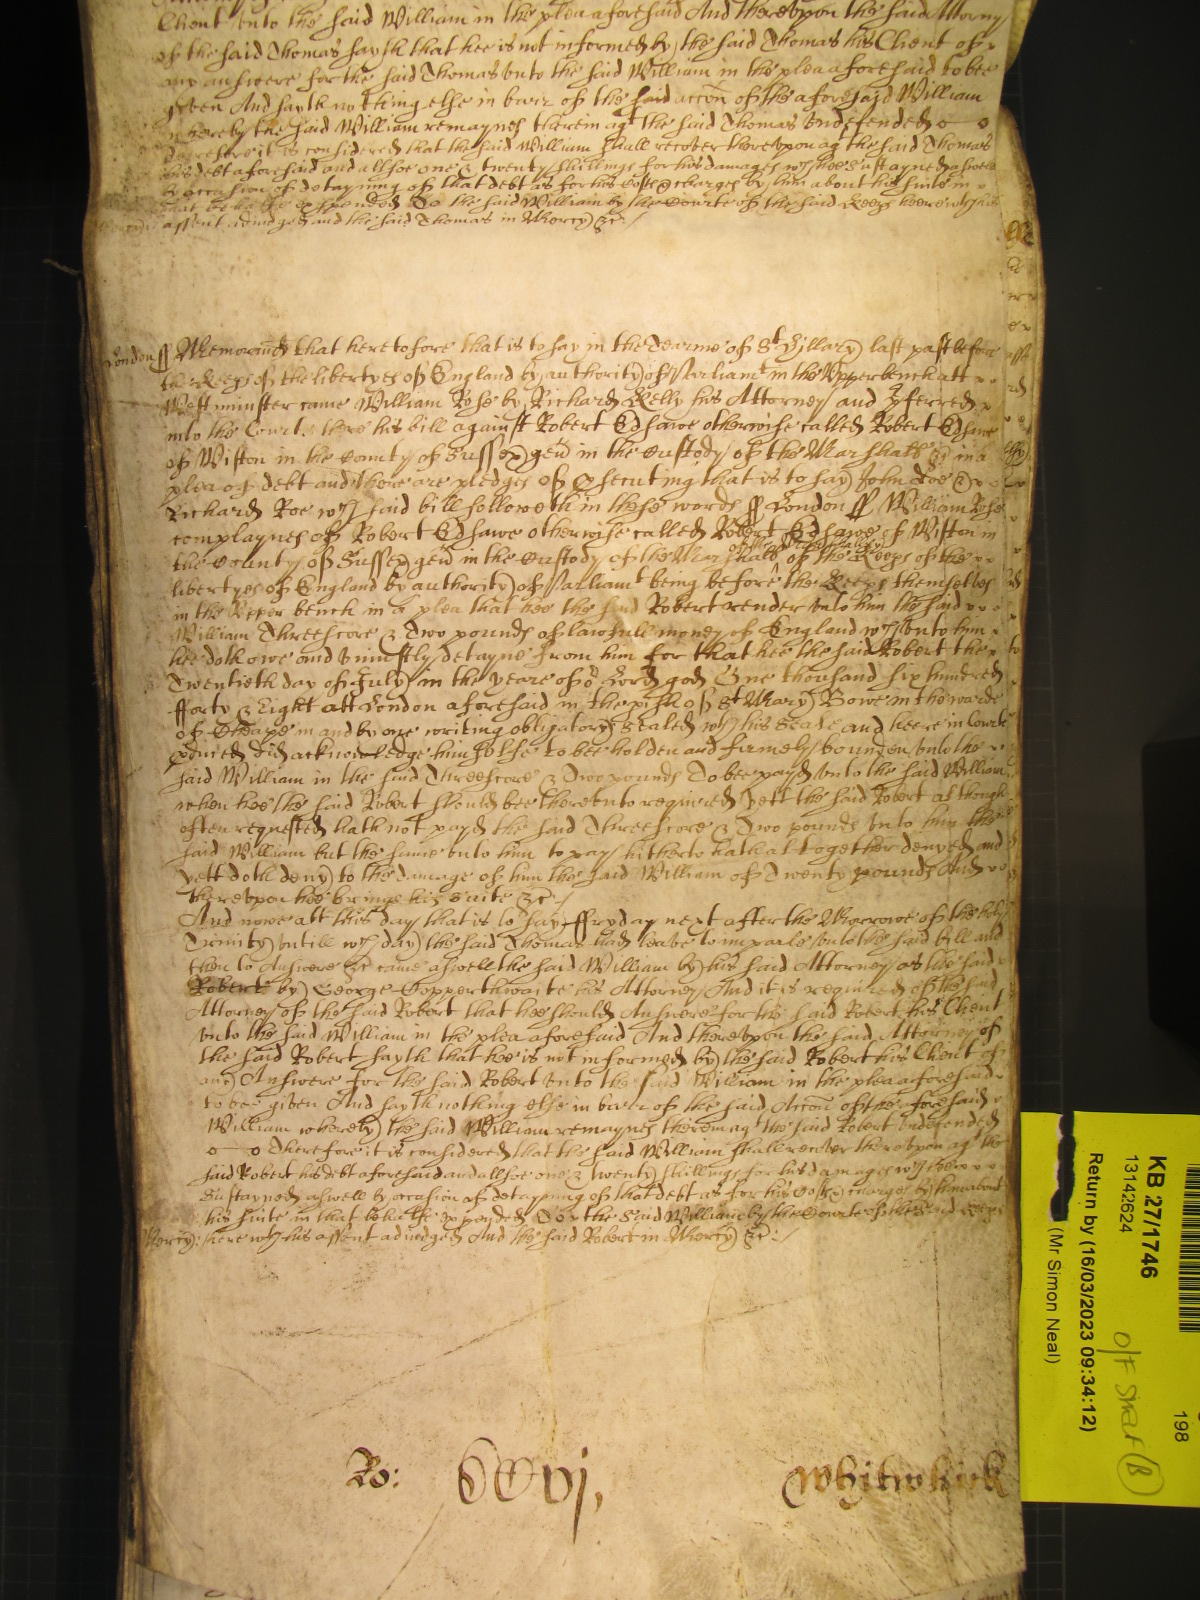 Client vnto the said William in the plea aforesaid And therevpon the said Attorny
of the said Thomas sayth that hee is not informed by the said Thomas his Client of
any answere for the said Thomas vnto the said William in the plea aforesaid to bee
given And sayth nothing else in barr of the said accon of the aforesaid William
whereby the said William remaynes therein agt the said Thomas vndefended
Therefore it is considered that the said William shall recover therevpon agt the said Thomas
his debt aforesaid and allsoe one & twenty shillings for his damages wch hee sustayned aswell
by occasion of detayning of that debt as for his Costs & charges by him about his suite in
that behalfe expended To the said William by the Courte of the said Keeps heere wth his
assent adiudged and the said Thomas in Mercy &c
London ss Memorand that heretofore that is to say in the Tearme of St Hillary last past before
the Keeps of the libertyes of England by authority of Parliamt in the Vpper bench att
Westminster came William Rose by Richard Kelly his Attorney and pferred
into the Court there his bill against Robert Edsawe otherwise called Robert Edsawe
of Wiston in the County of Sussex gen in the Custody of the Marshall &c in a
plea of debt and there are pledges of psecuting that is to say John Doe &
Richard Roe wch said bill followeth in these words ss London ss William Rose
complaynes of Robert Edsawe otherwise called Robert Edsawe of Wiston in
the County of Sussex gen in the Custody of the Marshall of the Keeps of the
libertyes of England by authority of Parliamt being before the Keeps themselves
in the Vpper bench in a plea that hee the said Robert render vnto him the said
William Threescore & Two pounds of lawfull money of England wch vnto him
hee doth owe and vniustly detayne from him for that hee the said Robert the
Twentieth day of July in the yeare of or Lord god One thousand six hundred
fforty & Eight att London aforesaid in the pish of St Mary Bowe in the warde
of Cheape in and by one writing obligatory Sealed wth his Seale and heere in Courte
pduced did acknowledge himselfe to bee holden and firmely bounden vnto the
said William in the said Threescore & Two pounds To bee payd vnto the said William
when hee the said Robert should bee therevnto required Yett the said Robert although
often requested hath not payd the said Threescore & Two pounds vnto him the
said William but the same vnto him to pay hitherto hath altogether denyed and
yett doth deny to the damage of him the said William of Twenty pounds And
therevpon hee brings his suite &c
And nowe att this day that is to say ffryday next after the Morrowe of the holy
Trinity vntill wch day the said Thomas had leave to imparle vnto the said bill and
then to Answere &c came aswell the said William by his said Attorney as the said
Robert by George Copperthwaite his Attorney And it is required of the said
Attorney of the said Robert that hee should Answere for the said Robert his Client
vnto the said William in the plea aforesaid And therevpon the said Attorney of
the said Robert sayth that hee is not informed by the said Robert his Client of
any Answere for the said Robert vnto the said William in the plea aforesaid
to bee given And sayth nothing else in barr of the said Accon of the aforesaid
William whereby the said William remaynes therein agt the said Robert vndefended
Therefore it is considered that the said William shall recover therevpon agt the
said Robert his debt aforesaid and allsoe one & twenty shillings for his damages wch hee
Sustayned aswell by occasion of detayning of that debt as for his Costs & charges by him about
his suite in that behalfe expended To the said William by the Courte of the said Keeps
Mercy: heere wth his assent adiudged And the said Robert in Mercy &c:
Ro:
Whitwhick
KB 27/1746
13142624
Return by (16/03/2023 09:34:12)
(Mr Simon Neal)
198